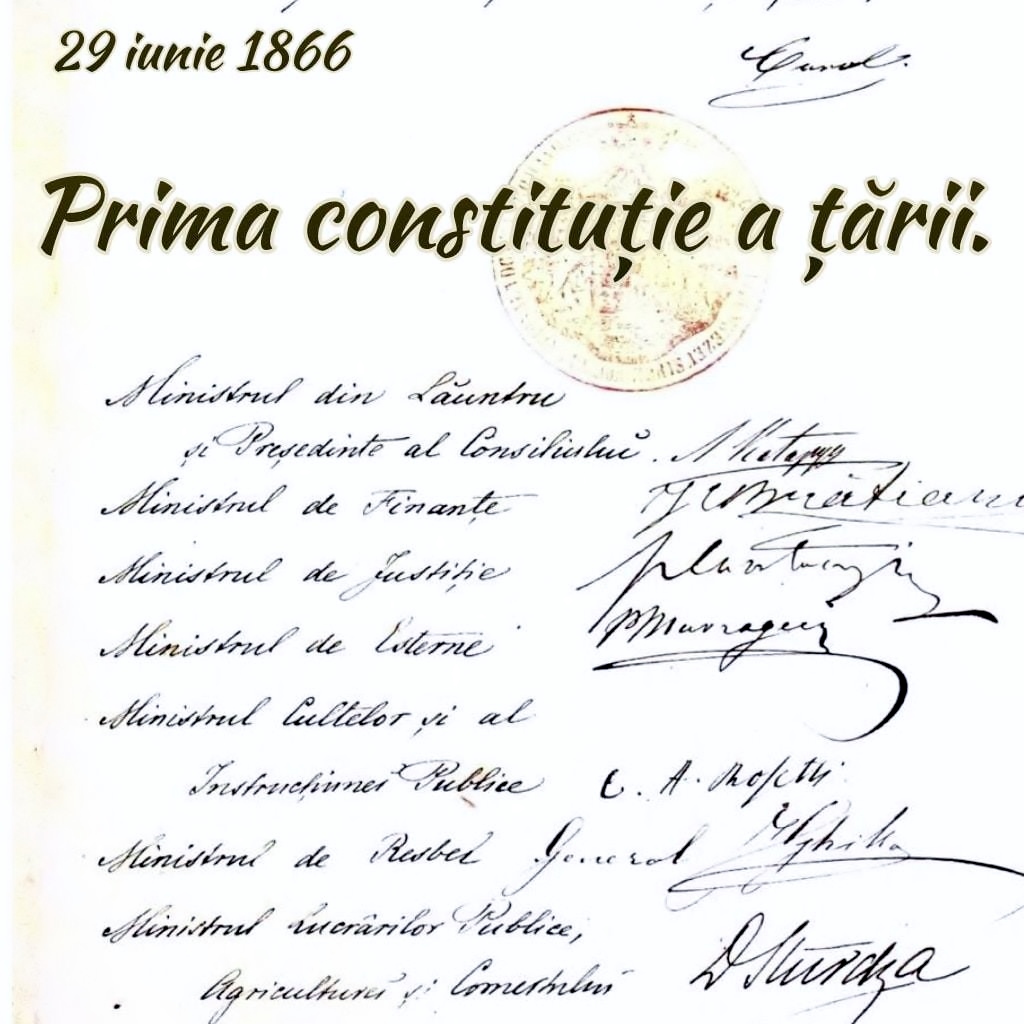 29 iunie 1866
Carol.
Prima constituție a țării.
Ministrul din Lăuntru
și Președinte al Consiliului. L Catargiu
Ministrul de Finanțe I C Brătianu
Ministrul de Justiție
Ministrul de Esterne P Mavrogeni
Ministrul Cultelor și al
Instrucțiunei Publice C. A. Rosetti
Ministrul de Resbel General I Ghika
Ministrul Lucrărilor Publice,
Agriculturei și Comerțului D Sturdza